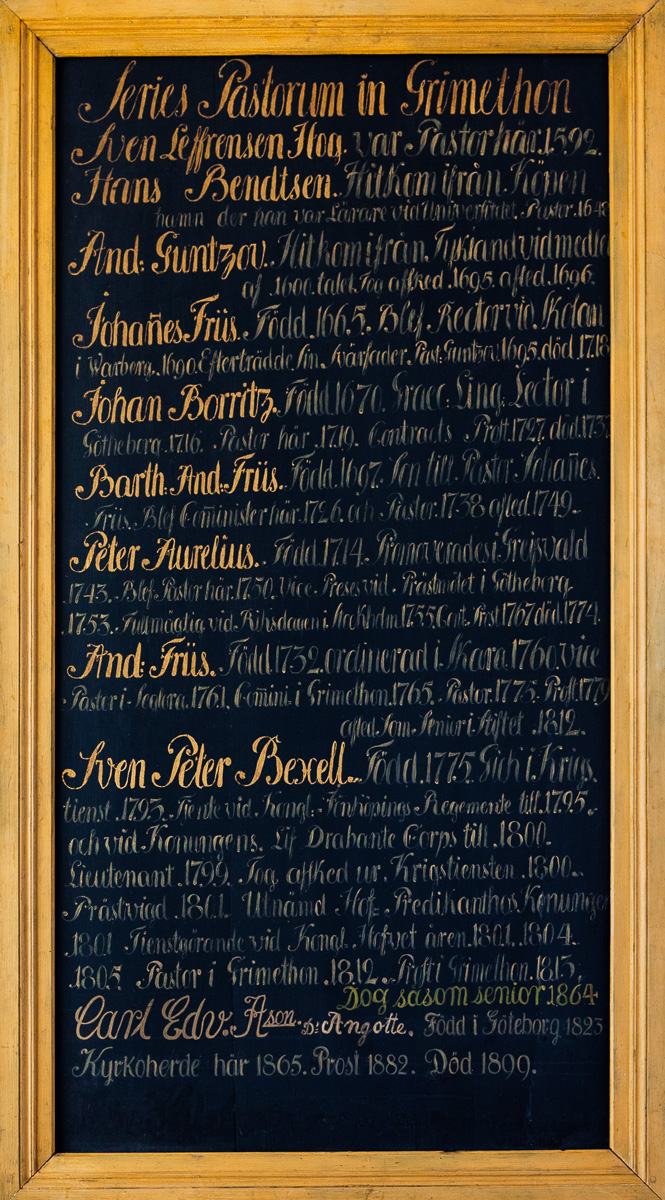 Series Pastorum in Grimethon
Sven Leffrensen Hog. var Pastor här. 1592.
Hans Bendtsen. Hitkom ifrån Köpen
hamn der han var Lärare vid Universitetet. Pastor. 1648
And: Guntzov. Hitkom ifrån Tyksland vid medlet
af 1600. talet. Tog affked. 1695. afled. 1696.
Johan̄es Früs. Född. 1665. Blef Rector vid Skolan
i Warberg. 1690. Efterträdde Sin Svärfader Past: Guntzov. 1695. död. 1718
Johan Borritz. Född 1670. Graec: Ling: Lector i
Götheborg. 1716. Pastor här. 1719. Contracts Prost. 1727. död. 1737
Barth: And: Früs. Född. 1697. Son till Pastor Johan̄es.
Früs. Blef Com̄inister här. 1726. och Pastor. 1738 afled. 1749.
Peter Aurelius. Född. 1714. Promoverades i Greifsvald
1743. Blef Pastor här. 1750. Vice Preses vid Prästmötet i Götheborg
1753. Fullmägtig vid Riksdagen i Stockholm. 1755. Cont. Prst. 1767 död. 1774.
And: Früs. Född 1732. ordinerad i Skara. 1760. vice
Pastor i Seglora. 1761. Com̄ini. i Grimethon. 1765. Pastor. 1775. Prost. 1779
afled. Som Senior i Stiftet. 1812.
Sven Peter Bexell. Född. 1775. Gick i Krigs.
tienst. 1793. Tiente vid Kongl. Jönköpings Regemente till. 1795.
och vid Konungens. Lif Drabante Corps till. 1800.
Lieutenant. 1799. Tog affked ur Krigstiensten. 1800.
Prästvigd. 1801. Utnämd Hof= Predikant hos Konungen
1801 Tienstgörande vid Kongl. Hofvet åren. 1801. 1804.
1805. Pastor i Grimethon. 1812. Prost i Grimethon. 1815.
Dog såsom senior 1864.
Carl Edv. Ason. D:s Angotte. Född i Göteborg 1823
Kyrkoherde här 1865. Prost 1882. Död 1899.